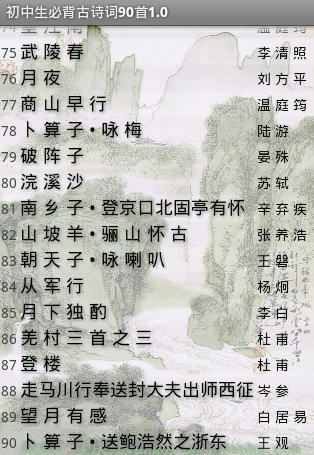 初中生必背古诗词90首1.0
75 武陵春 李清照
76 月夜 刘方平
77 商山早行 温庭筠
78 卜算子•咏梅 陆游
79 破阵子 晏殊
80 浣溪沙 苏轼
81 南乡子•登京口北固亭有怀 辛弃疾
82 山坡羊•骊山怀古 张养浩
83 朝天子•咏喇叭 王磐
84 从军行 杨炯
85 月下独酌 李白
86 羌村三首之三 杜甫
87 登楼 杜甫
88 走马川行奉送封大夫出师西征 岑参
89 望月有感 白居易
90 卜算子•送鲍浩然之浙东 王观